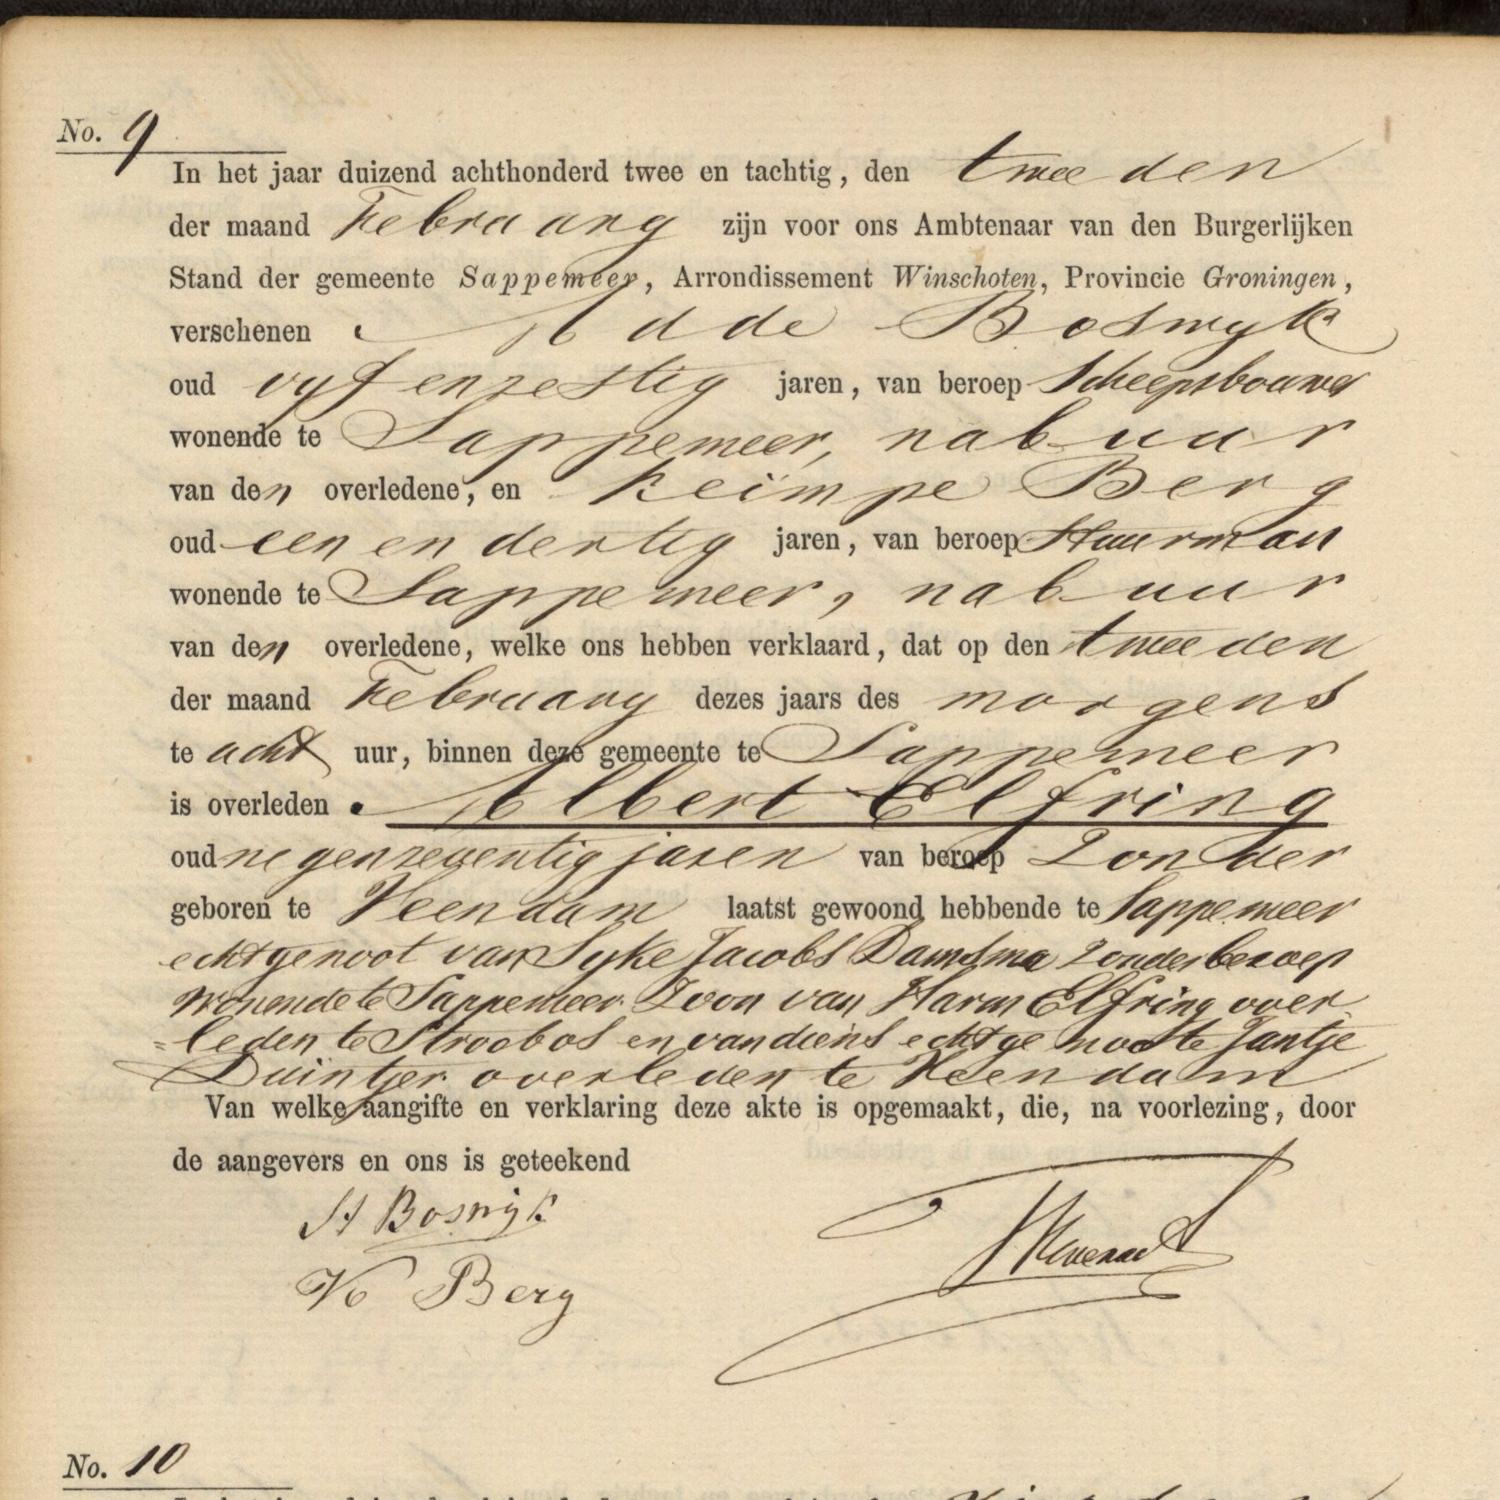 No. 9
In het jaar duizend achthonderd twee en tachtig, den tweeden
der maand Februarij zijn voor ons Ambtenaar van den Burgerlijken
Stand der gemeente Sappemeer, Arrondissement Winschoten, Provincie Groningen,
verschenen Adde Boswyk
oud vyfenzestig jaren, van beroep Scheepsbouwer
wonende te Sappemeer, nabuur
van den overledene, en Keimpe Berg
oud eenendertig jaren, van beroep Stuurman
wonende te Sappemeer, nabuur
van den overledene, welke ons hebben verklaard, dat op den tweeden
der maand February dezes jaars des morgens
te acht uur, binnen deze gemeente te Sappemeer
is overleden Albert Elfring
oud negenzeventig jaren van beroep Zonder
geboren te Veendam laatst gewoond hebbende te Sappemeer
echtgenoot van Syke Jacobs Damsma zonder beroep
wonende te Sappemeer. Zoon van Harm Elfring over
=leden te Stroobos en van diens echtgenoote Jantje
Duintjer overleden te Veendam
Van welke aangifte en verklaring deze akte is opgemaakt, die, na voorlezing, door
de aangevers en ons is geteekend
A Boswijk
K Berg
No. 10